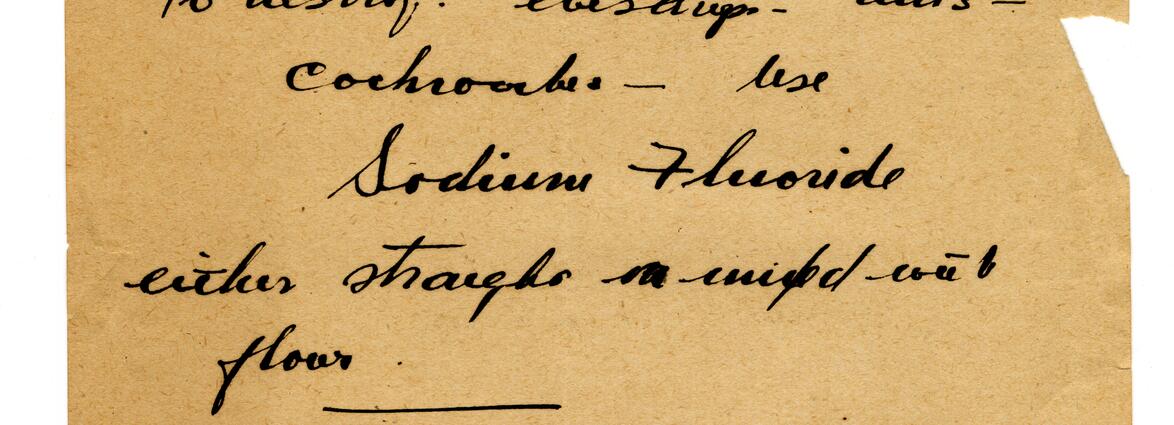 To destroy. - ants -
Cochroaches - Use
Sodium Fluoride
either straight or mixed with
flour.